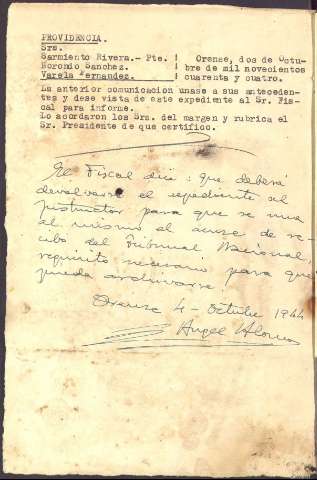 PROVIDENCIA.
Srs.
Sarmiento Rivera.- Pte.
Noromio Sanchez.
Varela Fernandez.
Orense, dos de Octu-
bre de mil novecientos
cuarenta y cuatro.
La anterior comunicacion unase a sus anteceden-
tes y dese vista de este expediente al Sr. Fis-
cal para informe.
Lo acordaron los Srs. del margen y rubrica el
Sr. Presidente de que certifico.
El Fiscal dice: que deberá
devolverse el expediente al
Instructor para que se una
al mismo el acuse de re-
cibo del Tribunal Nacional,
requisito necesario para que
pueda archivarse.
Orense 4- Octubre 1944
Angel Alonso